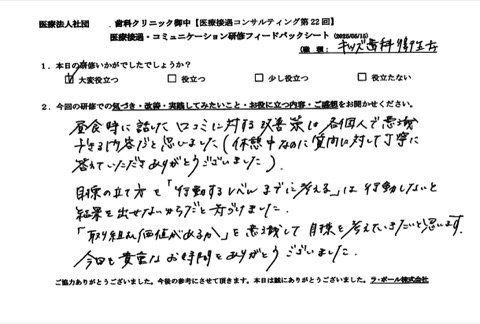 医療法人社団　　歯科クリニック御中【医療接遇コンサルティング第22回】
医療接遇・コミュニケーション研修フィードバックシート (2025/05/15)
（職 種： キッズ歯科衛生士
1．本日の研修いかがでしたでしょうか？
☑ 大変役立つ　□ 役立つ　□ 少し役立つ　□ 役立たない
2．今回の研修での気づき・改善・実践してみたいこと・お役に立つ内容・ご感想をお聞かせください。
昼食時に話した口コミに対する改善策は各個人で意識
できる内容だと思いました（休憩中なのに質問に対して丁寧に
答えていただきありがとうございました）．
目標の立て方を「行動するレベルまでに考える」は行動しないと
結果を出せないからだと気づけました．
「取り組む価値があるか」を意識して目標を考えていきたいと思います．
今日も貴重なお時間をありがとうございました．
ご協力ありがとうございました。今後の参考にさせて頂きます。本日は誠にありがとうございました。ラ・ポール株式会社